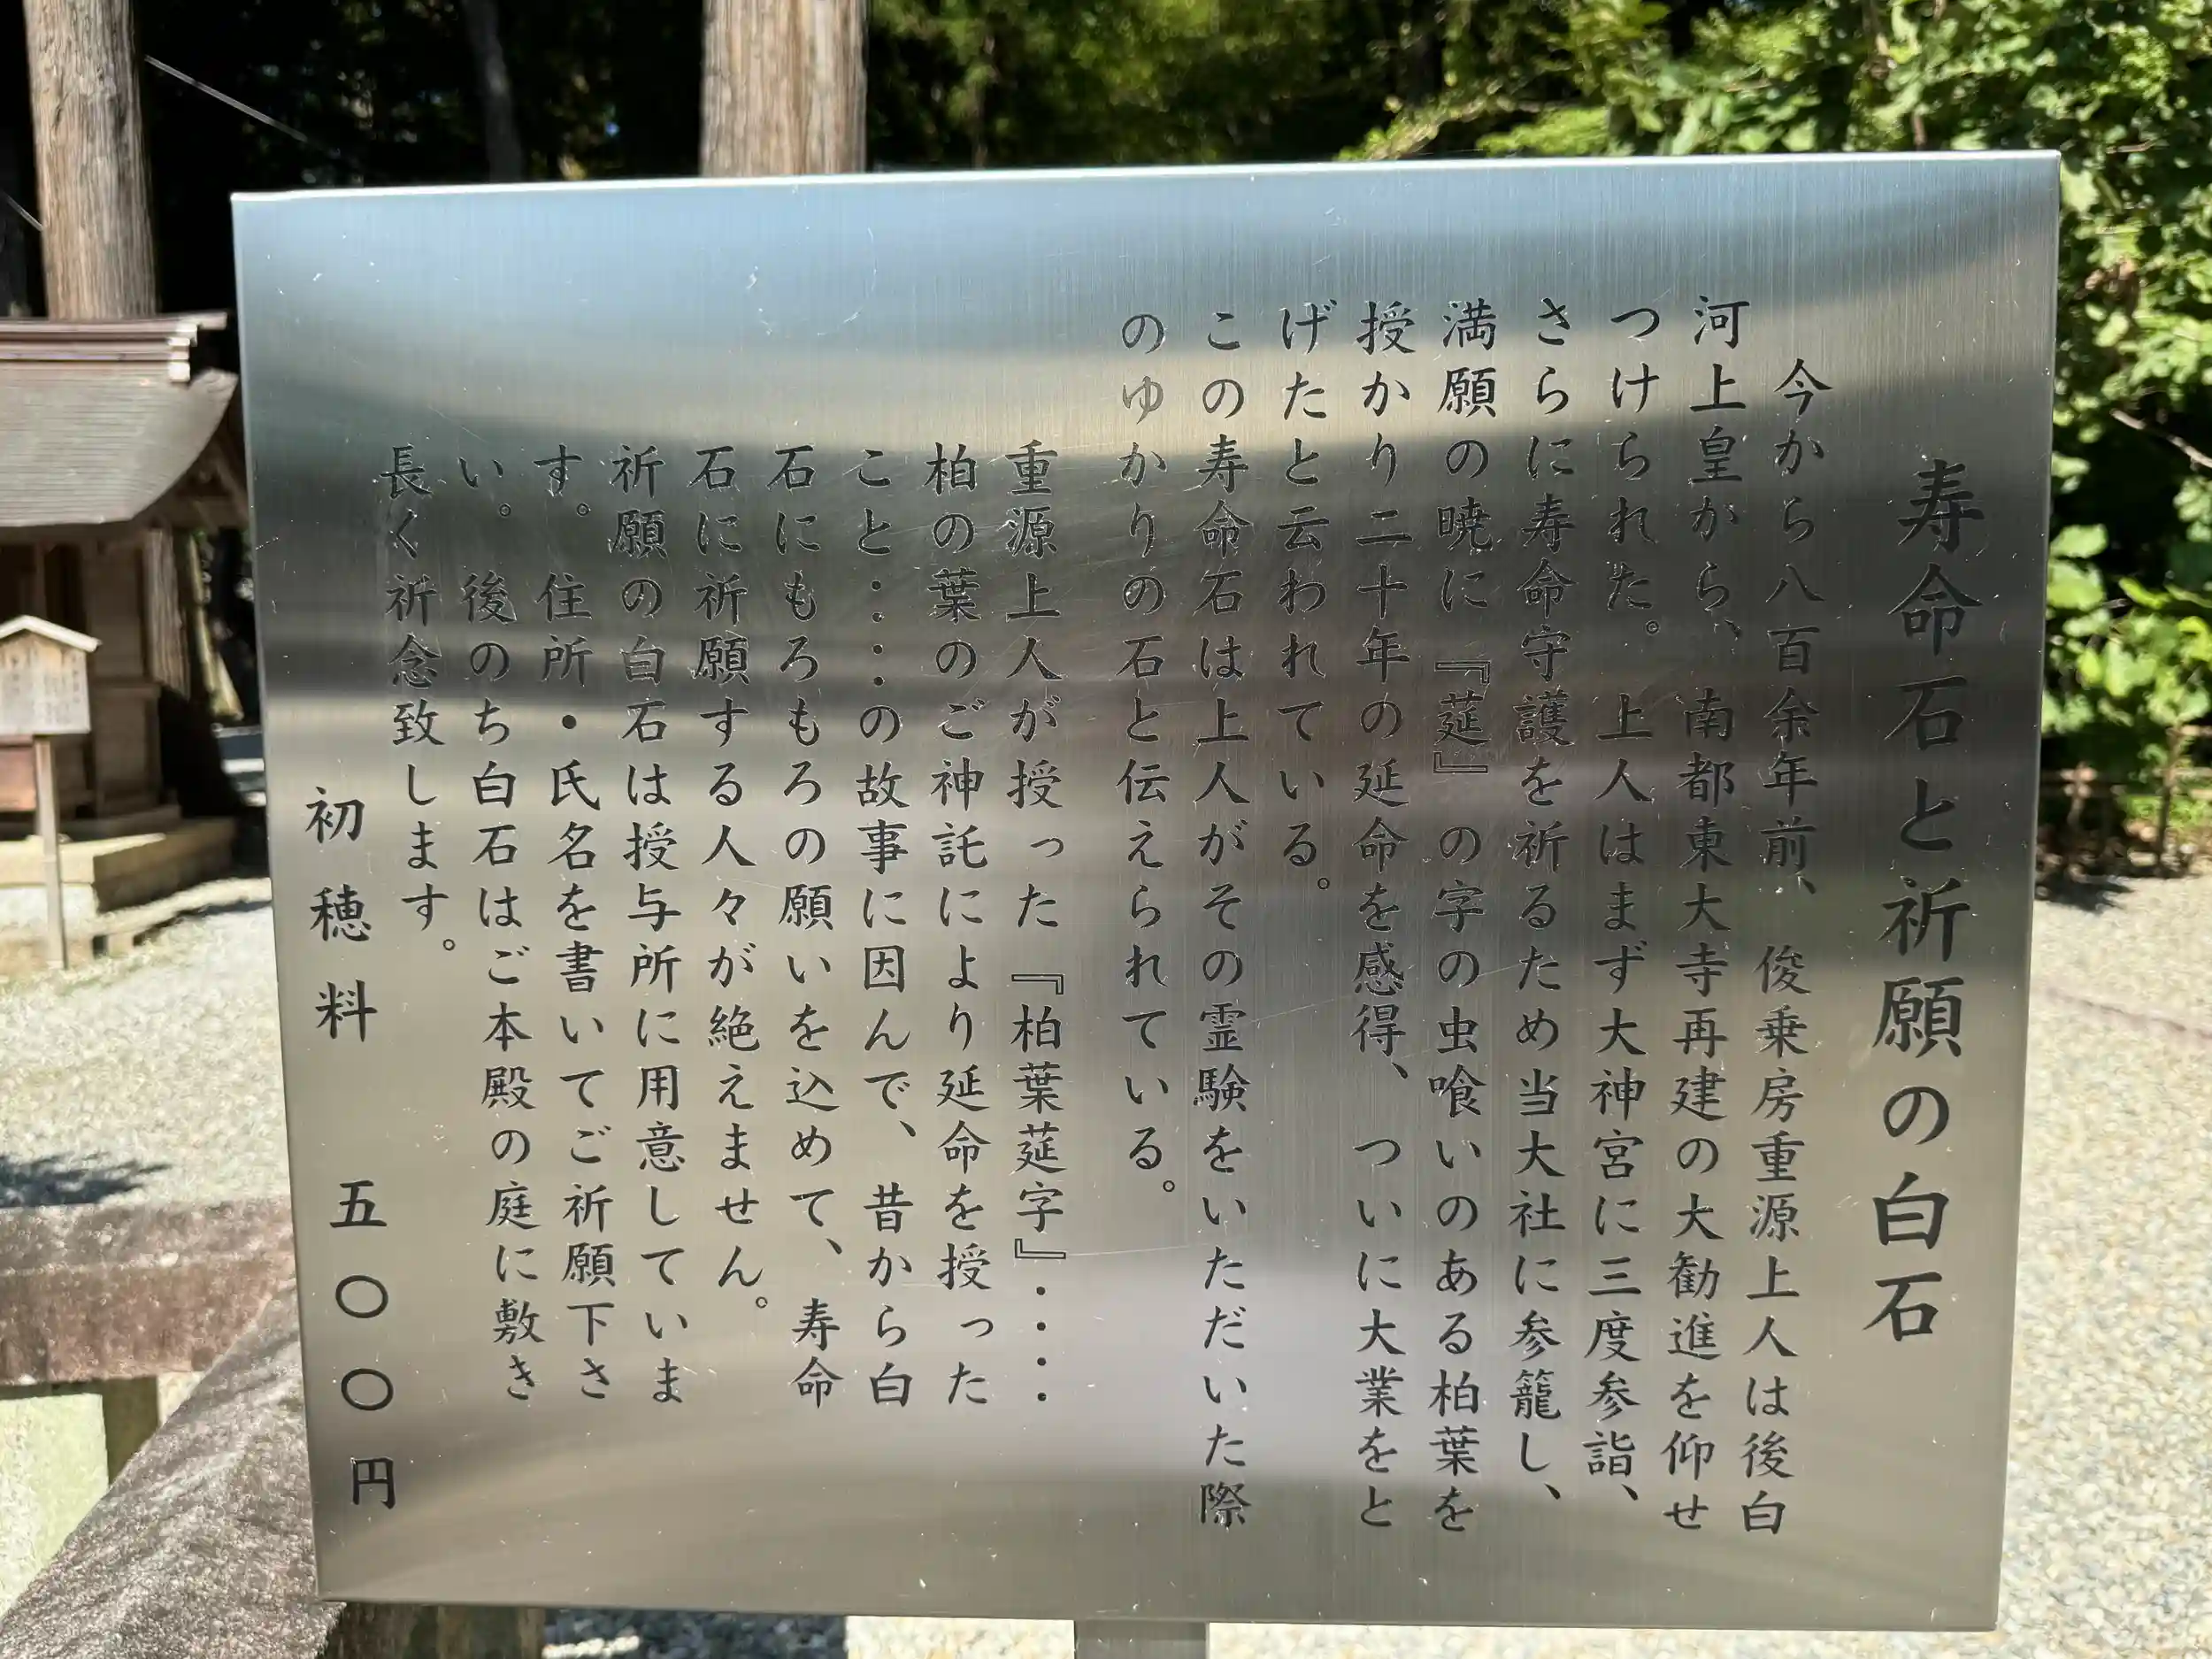 寿命石と祈願の白石
今から八百余年前、俊乗房重源上人は後白
河上皇から、南都東大寺再建の大勧進を仰せ
つけられた。上人はまず大神宮に三度参詣、
さらに寿命守護を祈るため当大社に参籠し、
満願の暁に『莚』の字の虫喰いのある柏葉を
授かり二十年の延命を感得、ついに大業をと
げたと云われている。
この寿命石は上人がその霊験をいただいた際
のゆかりの石と伝えられている。
重源上人が授った『柏葉莚字』・・・・
柏の葉のご神託により延命を授った
こと・・・・の故事に因んで、昔から白
石にもろもろの願いを込めて、寿命
石に祈願する人々が絶えません。
祈願の白石は授与所に用意していま
す。住所・氏名を書いてご祈願下さ
い。後のち白石はご本殿の庭に敷き
長く祈念致します。
初穂料 五〇〇円